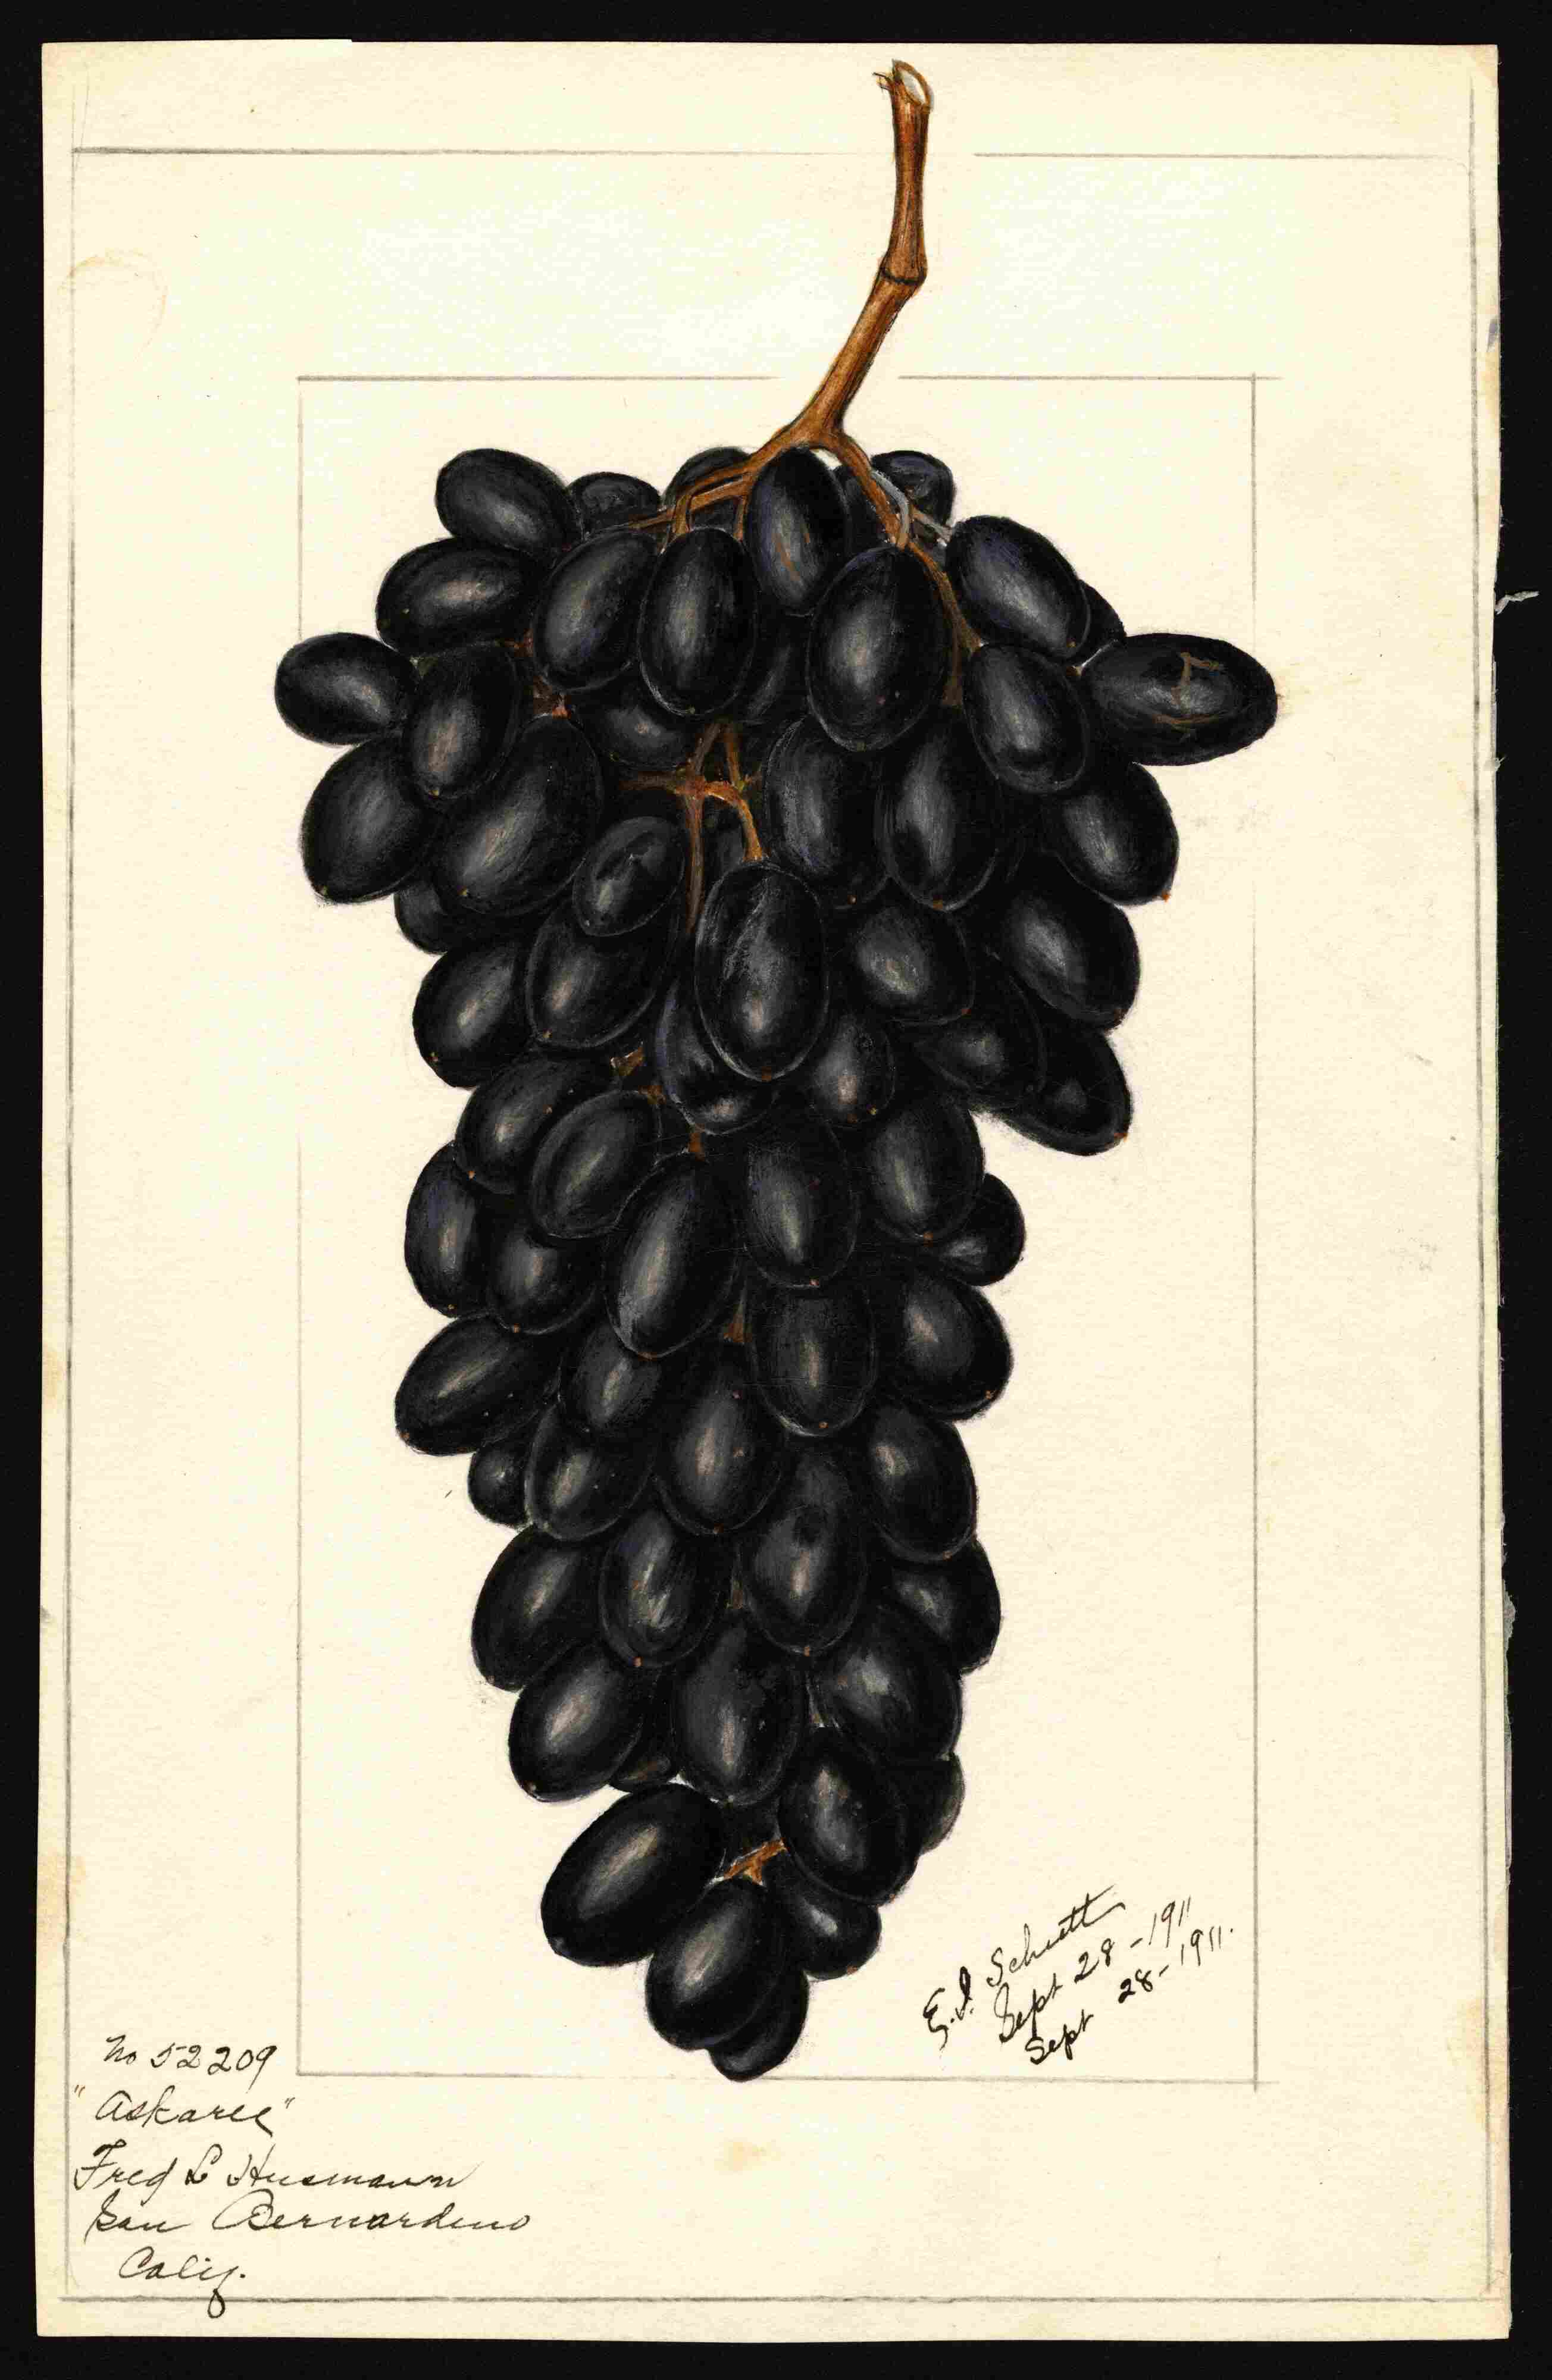 E. I. Schutt
Sept 28-1911
Sept 28-1911.
No 52209
"Askaree"
Fred L Husmann
San Bernardino
Calif.